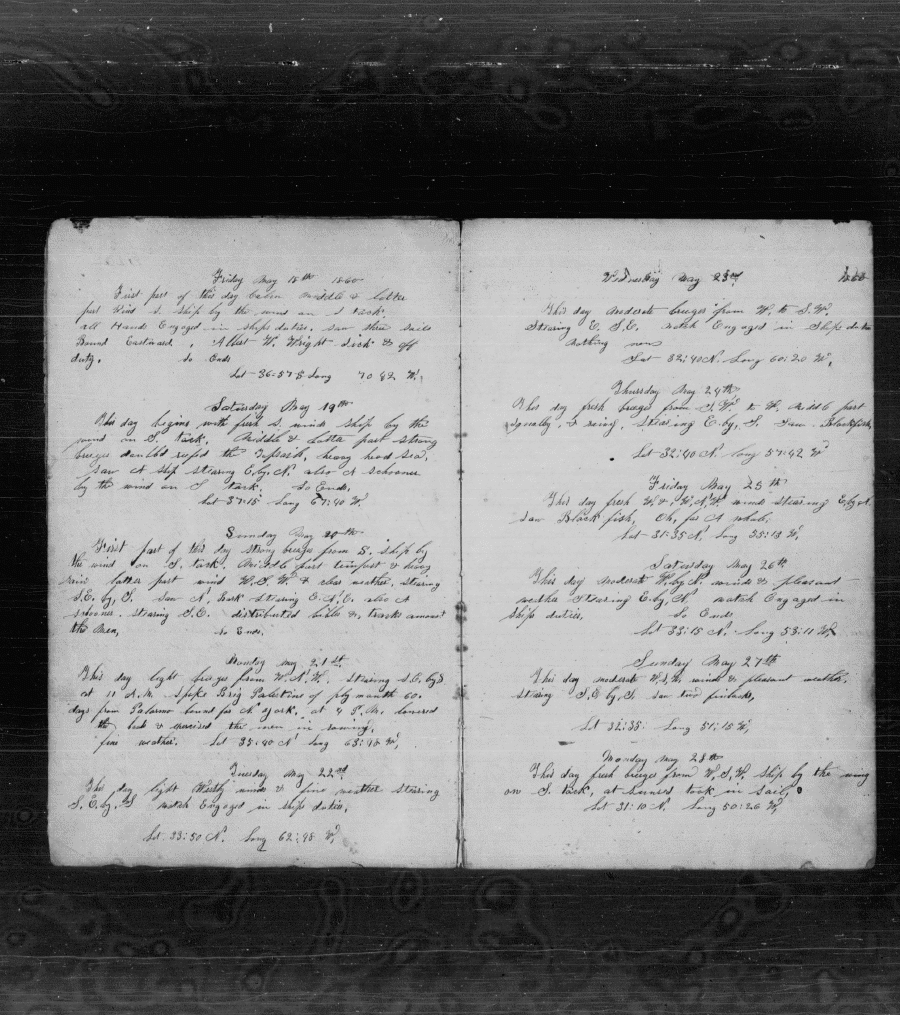 Friday May 18th 1860
First part of this day Calm middle & latter
part Wind S. Ship by the wind on S tack.
all Hands Engaged in ships duties. saw three sails
Bound Eastward. Albert W. Wright sick & off
duty. So Ends
Lat 36:57 Long 70 42 W.
Saturday May 19th
This day begins with fresh S. winds Ship by the
wind on S. tack. Middle & Latter part strong
breezes the Topsails, heavy head sea.
saw A ship stearing E.by.N. also A schooner
by the wind on S tack. So Ends.
Lat 37:15 Long 67:40 W.
Sunday May 20th
First part of this day strong breezes from S. ship by
the wind on S. tack. Middle part tempest & heavy
rain latter part wind W.S.W. & clear weather, staring
S.E. by, S. saw A Bark Stearing E.N.E. also A
schooner. stearing S.E. distributed bibles &, tracks amonst
the Men, So Ends,
Monday May 21st
This day light breezes from W.N.W. staring S.E. by S
at 11 A.M. Spoke Brig of plymouth 60.
days from Palarmo bound for N york. at 4 P.M. lowered
the boats & exercised the men in rowing,
fine weather. Lat 35:40 N Long 63:48 W,
Tuesday May 22nd
This day light Westly winds & fine weather staring
S.E. by, S watch Engaged in ships duties,
Lat 33:50 N. Long 62:48 W,
Wednesday May 23rd 1860
This day moderate breezes from W. to S.W.
Stearing E.S.E. watch Engaged in Ships duties
Nothing new
Lat 32:40 N. Long 60:20 W,
Thursday May 24th
This day fresh breezes from S.W. to W. Middle part
squally, & raing, Stearing E.by, S. Saw Blackfish,
Lat 32:40 N. Long 57:42 W
Friday May 25th
This day fresh W.& W.N.W. winds stearing E.by.N.
saw Black fish, Oh, for A whale,
Lat 31:35 N. Long 55:13 W.
Saturday May 26th
This day moderate W.by.N. winds & pleasant
weather Stearing E.by, N watch Engaged in
Ship duties, So Ends
Lat 33:15 N. Long 53:11 W,
Sunday May 27th
This day moderate W.S.W. winds & pleasant weather,
staring S.E by, S. saw two finbacks,
Lat 32:35: Long 51:15 W,
Monday May 28th
This day fresh breezes from W.S.W. Ship by the wing
on S. tack, at sunset took in sail,
Lat 31:10 N. Long 50:26 W,